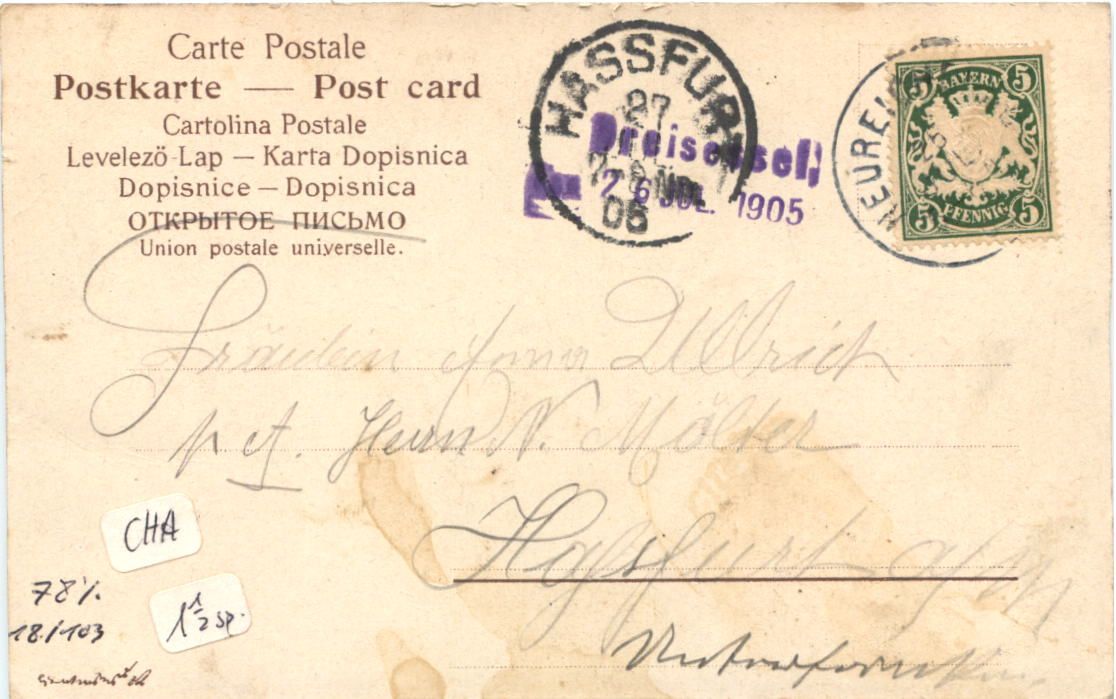 Carte Postale
Postkarte — Post card
Cartolina Postale
Levelező-Lap — Karta Dopisnica
Dopisnice — Dopisnica
ОТКРЫТОЕ ПИСЬМО
Union postale universelle.
HASSFURT
27
05
Dreisessel
26 JUL. 1905
NEUREI
5 BAYERN 5
5 PFENNIG 5
Fräulein Anna Ullrich
Herrn N. Molter
Hassfurt a/M
Unterfranken
CHA
78%
18./103
1 1/2 sp.